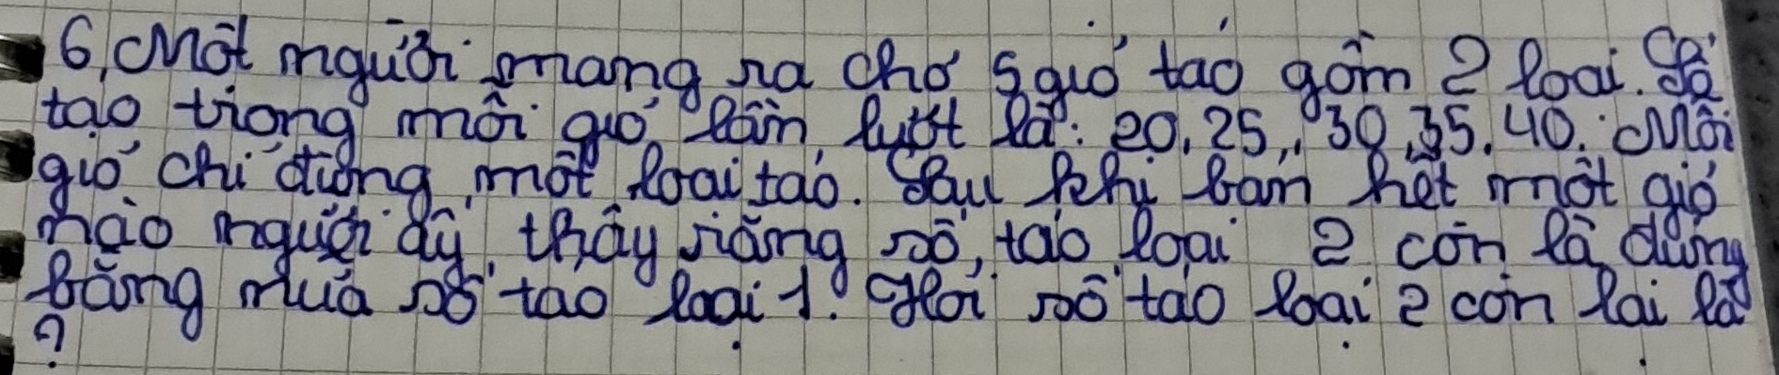 6, Một người mang ra chợ 5 giỏ táo gồm 2 loại. Số
táo trong mỗi giỏ lần lượt là: 20, 25, 30, 35, 40. Mỗi
giỏ chỉ đựng một loại táo. Sau khi bán hết một giỏ
nào người ấy thấy rằng số táo loại 2 còn lại đúng
bằng nửa số táo loại 1. Hỏi số táo loại 2 còn lại là
?